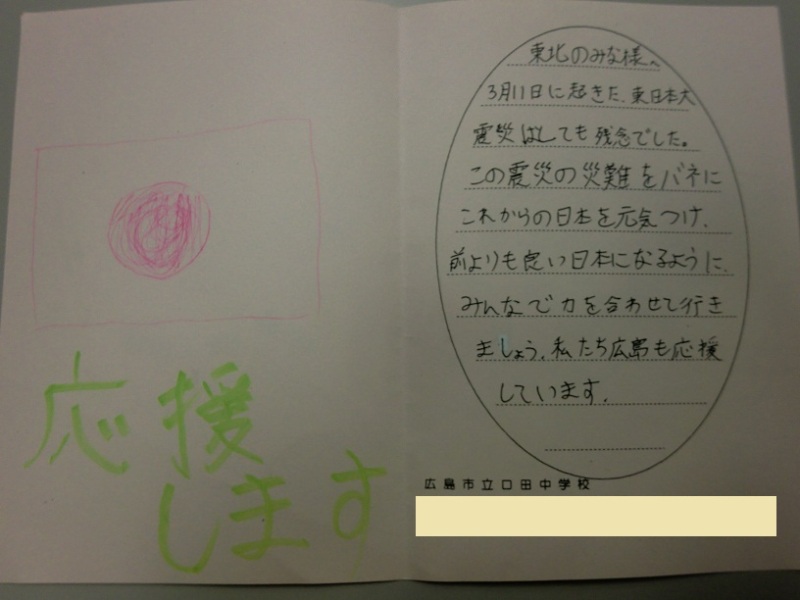 応援
します
東北のみな様へ
3月11日に起きた、東日本大
震災はとても残念でした。
この震災の災難をバネに
これからの日本を元気つけ、
前よりも良い日本になるように、
みんなで力を合わせて行き
ましょう。私たち広島も応援
しています。
広島市立口田中学校